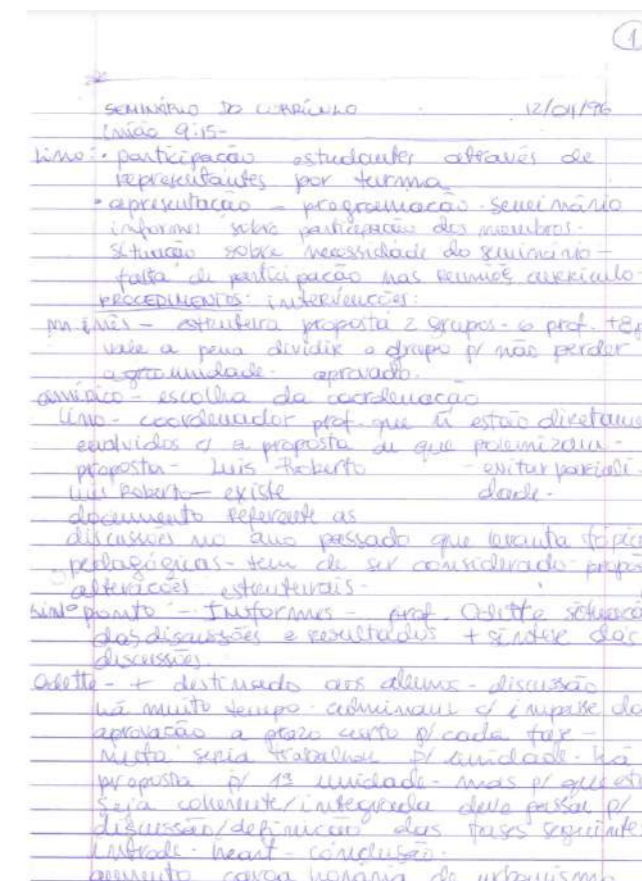 1
SEMINÁRIO DO CURRÍCULO 12/04/96
início 9:15-
Lino: • participação estudantes através de
representantes por turma
• apresentação - programação - seminário
informes sobre participação dos membros -
situação sobre necessidade do seminário -
falta de participação nas reuniões currículo -
PROCEDIMENTOS: intervenções:
Mª Inês - proposta 2 grupos - 6 prof. +
vale a pena dividir o grupo p/ não perder
aprovado.
- escolha da coordenação
Lino - coordenador prof. que ñ estão
envolvidos c/ a proposta ou que polemizam -
proposta - Luis Roberto - evitar parciali
Luis Roberto - existe dade -
documento referente as
discussões no ano passado que levanta
pedagógicas - tem de ser considerado -
alterações estruturais -
ponto - Informes - prof. Odette situação
das discussões e resultados + síntese das
discussões.
Odette - + destinado aos alunos - discussão
há muito tempo - culminaram c/ impasse da
aprovação a prazo curto p/ cada fase -
Meta seria trabalhar p/ unidade - há
proposta p/ 1ª unidade - mas p/ que
seja coerente/integrada deve passar p/
discussão/definição das fases seguintes
introd. - heart - conclusão -
aumento carga horária de urbanismo